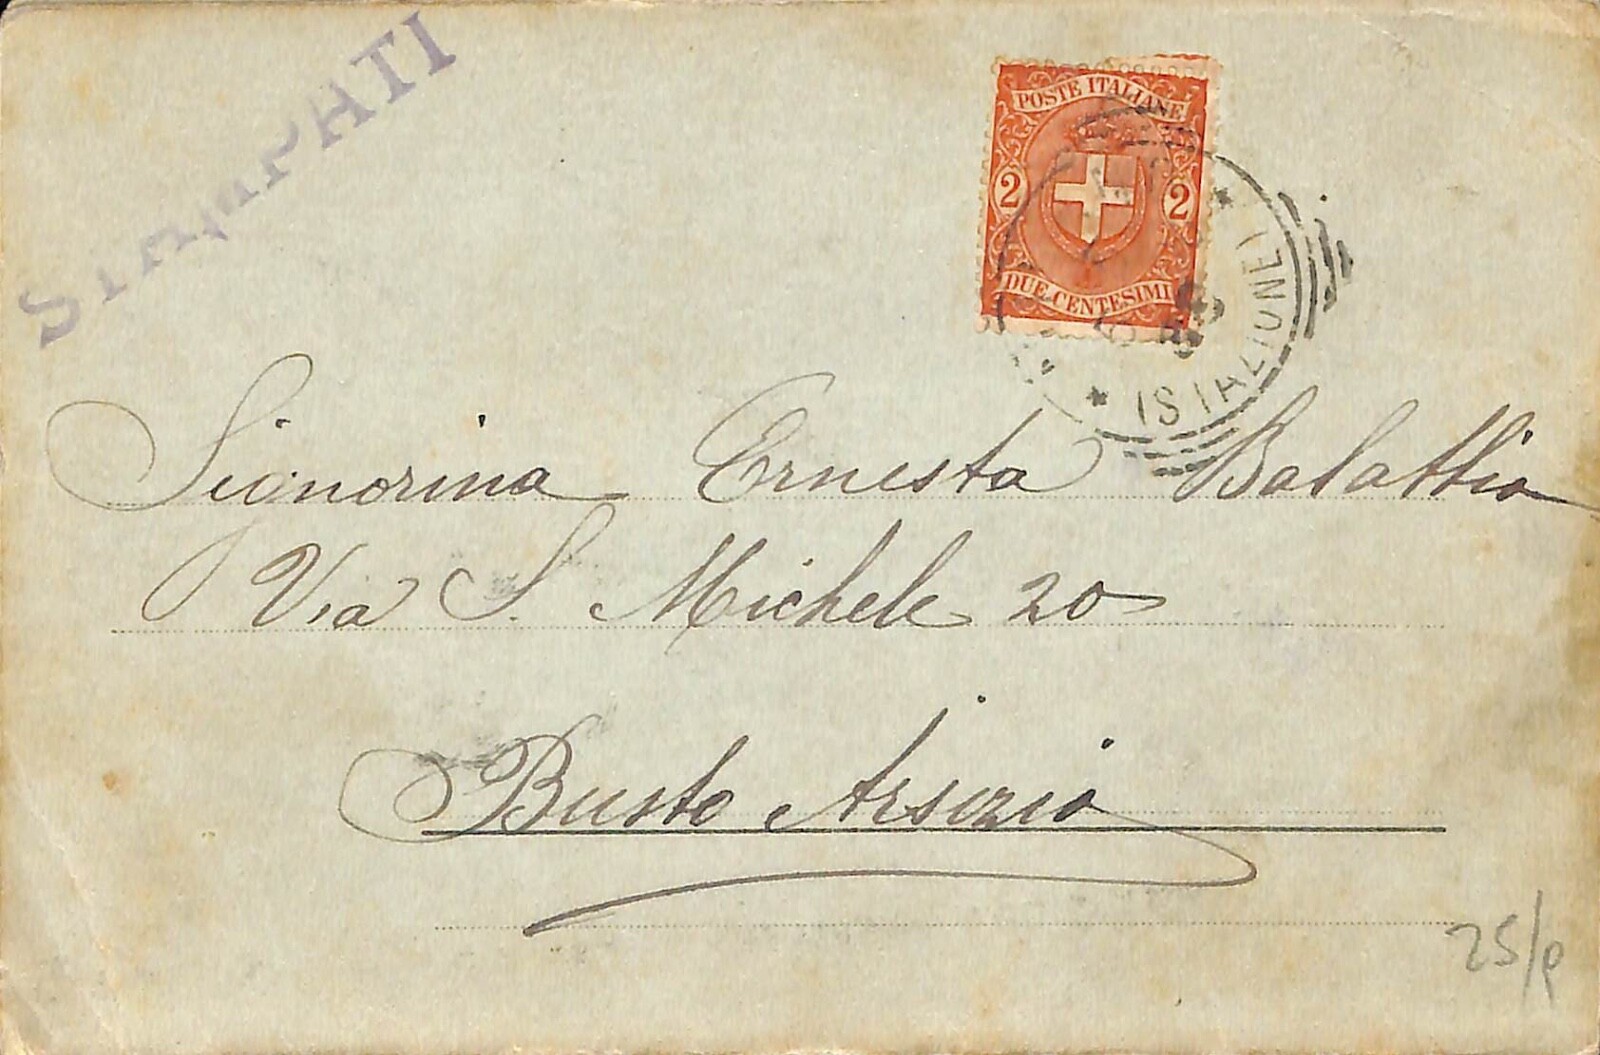 STAMPATI
POSTE ITALIANE
2 2
DUE CENTESIMI
(STAZIONE)
Signorina Ernesta
Via S. Michele 20
Busto Arsizio
25/